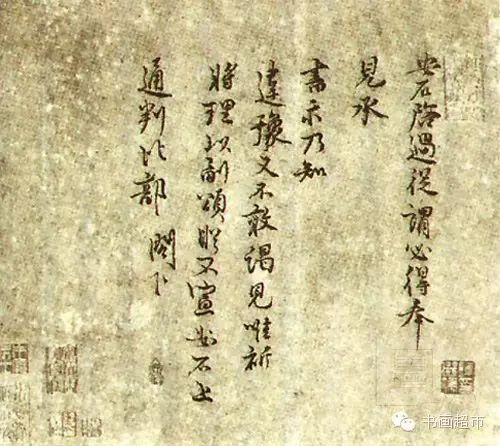 安石啓過從謂必得奉
見承
書示乃知
違豫又不敢謁見唯祈
將理以副頌眡不宣安石上
通判比部 閤下
书画超市